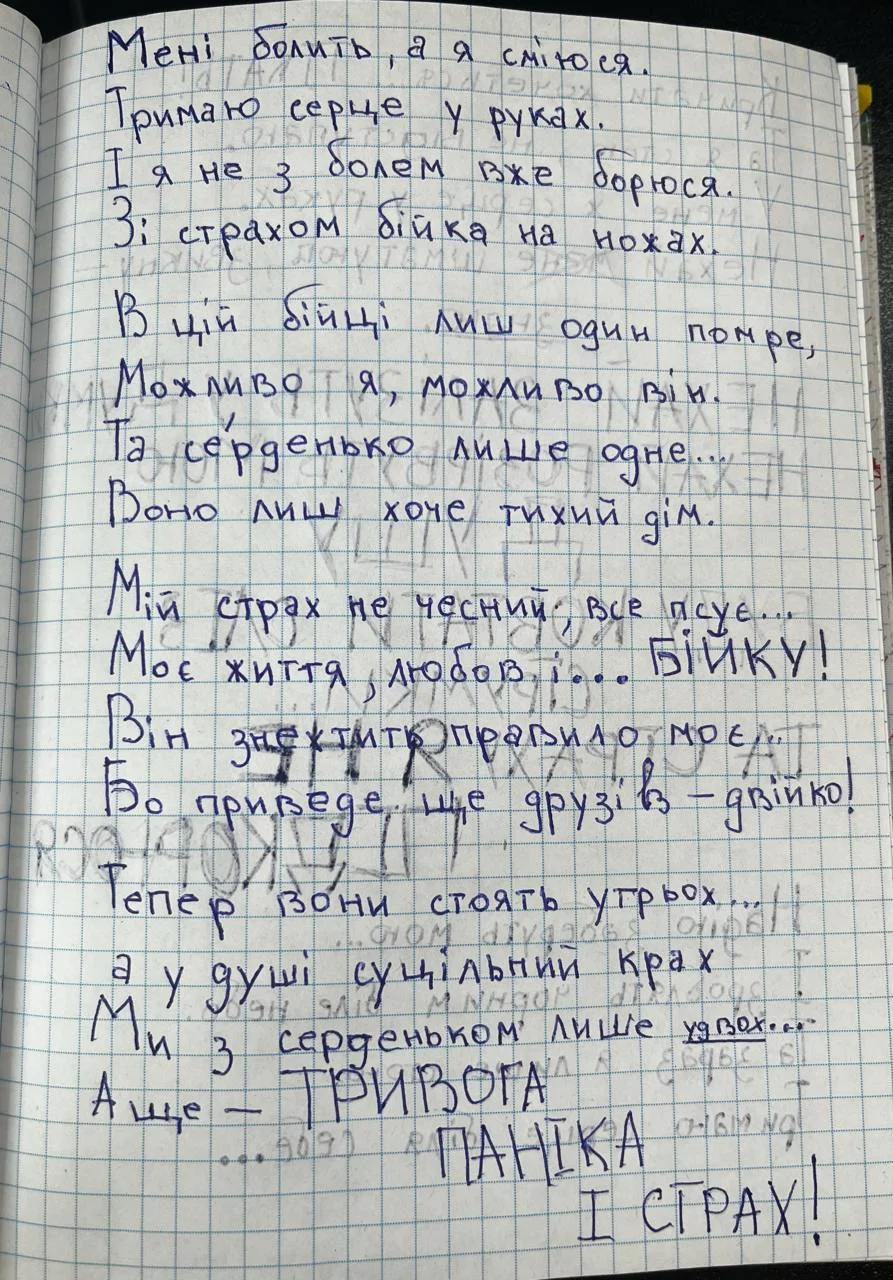 Мені болить, а я сміюся.
Тримаю серце у руках.
І я не з болем вже борюся.
Зі страхом бійка на ножах.
В цій бійці лиш один помре,
Можливо я, можливо він.
Та се́рденько лише одне...
Воно лиш хоче тихий дім.
Мій страх не чесний, все псує...
Моє життя, любов, і... БІЙКУ!
Він знехтить правило моє...
Бо приведе ще друзів – двійко!
Тепер вони стоять утрьох...
а у душі суцільний крах
Ми з серденьком лише удвох...
А ще – ТРИВОГА
ПАНІКА
І СТРАХ!